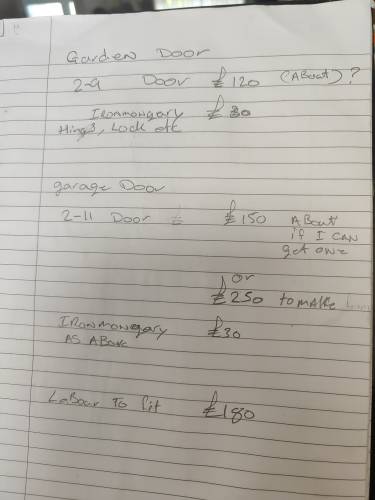 Garden Door
2-9 Door £120 (ABout)?
Ironmongary £30
Hings, Lock etc
garage Door
2-11 Door £150 ABout
if I CAN
get one
or
£250 to make
Ironmonegary £30
AS ABove
LaBour To fit £180